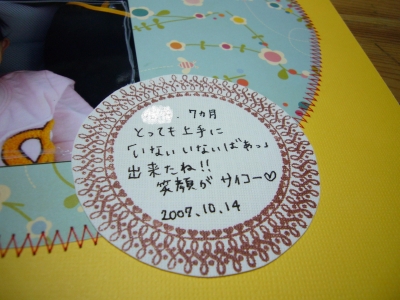 7ヵ月
とっても上手に
「いないいないばぁっ」
出来たね!!
笑顔が サイコー♡
2007.10.14